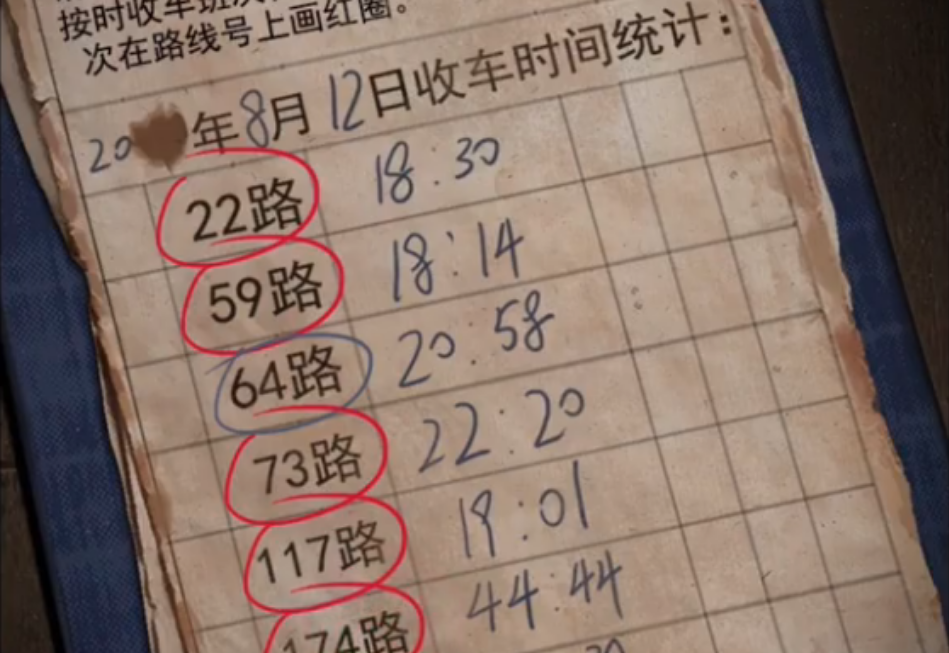 按时收车班次
次在路线号上画红圈。
20 年8月12日收车时间统计：
22路 18:30
59路 18:14
64路 20:58
73路 22:20
117路 19:01
174路 44:44